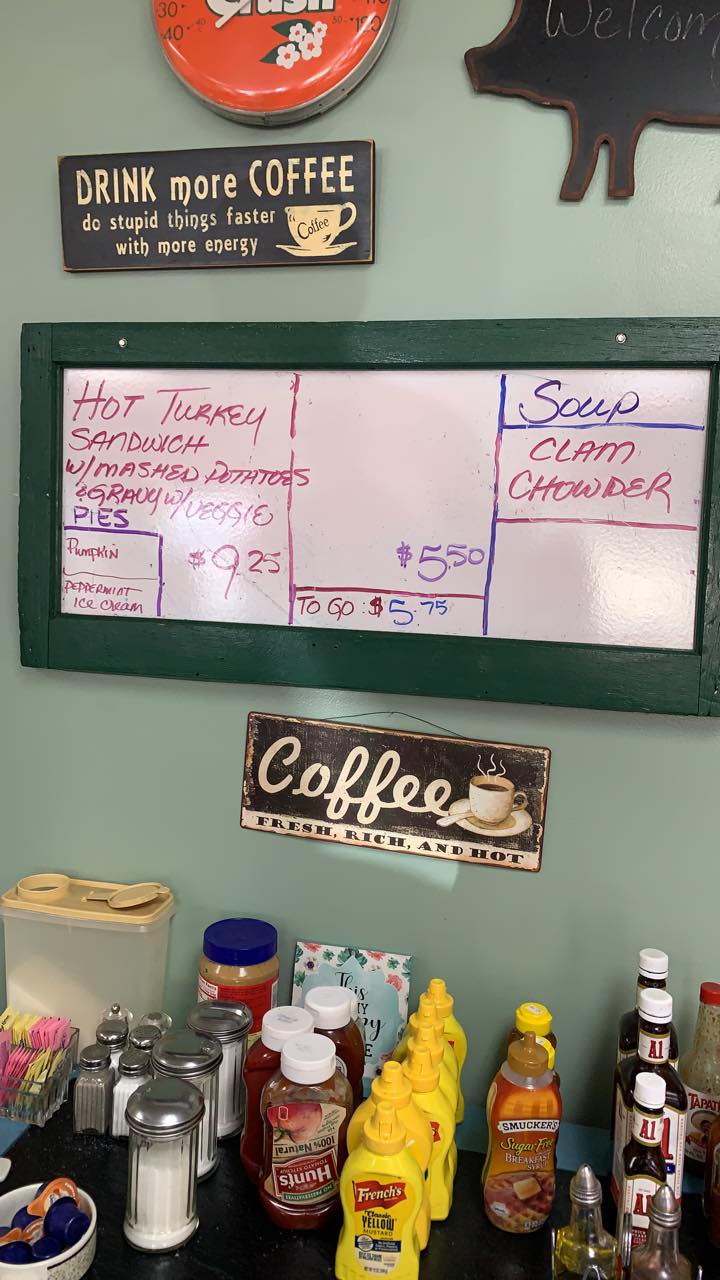 30
40
40
Crush
50
120
Welcom
DRINK more COFFEE
do stupid things faster
with more energy
Coffee
HOT TURKEY
SANDWICH
W/MASHED POTATOES
&GRAVY W/VEGGIE
PIES
Pumpkin
PEPPERMINT
ICE CREAM
$9.25
$5.50
TO GO : $5.75
Soup
CLAM
CHOWDER
Coffee
FRESH, RICH, AND HOT
This
100% Natural
Hunt's
TOMATO KETCHUP
NO PRESERVATIVES
French's
Classic
YELLOW
MUSTARD
SMUCKER'S
Sugar Free
BREAKFAST
SYRUP
A1
A1
A1
TAPAT